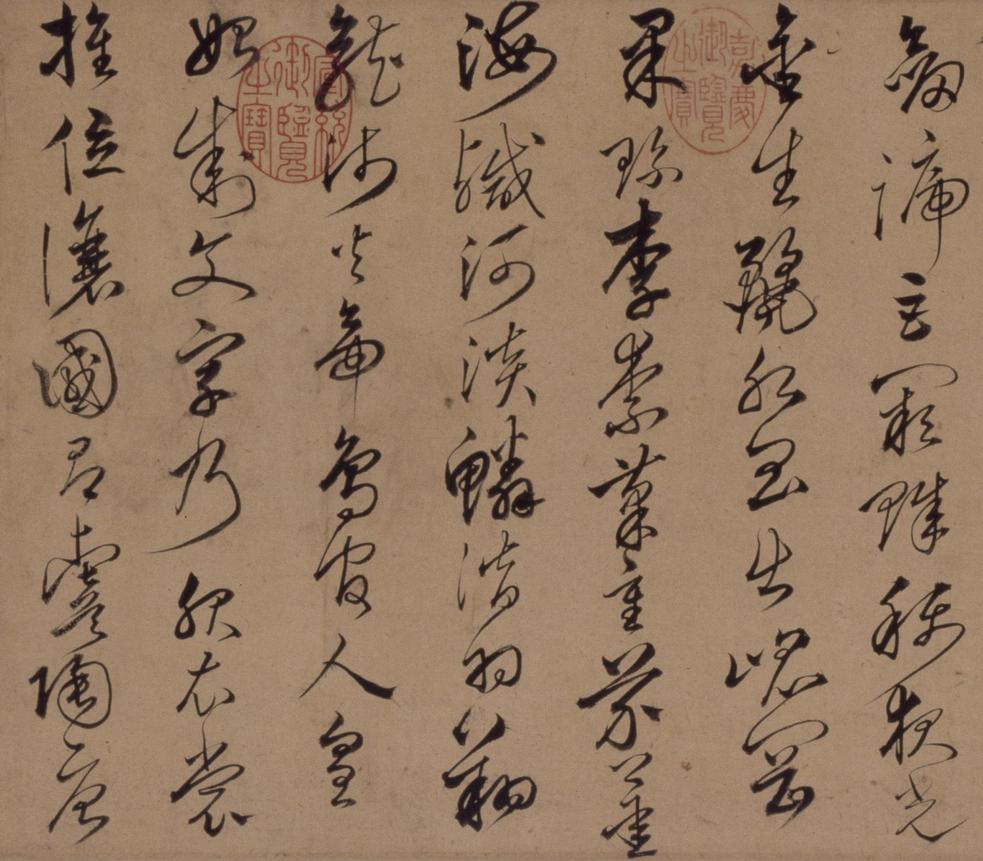 劍號巨闕珠稱夜光
金生麗水玉出崑岡
果珍李柰菜重芥薑
海鹹河淡鱗潛羽翔
龍師火帝鳥官人皇
始制文字乃服衣裳
推位讓國有虞陶唐
嘉慶御覽之寶
宣統御覽之寶